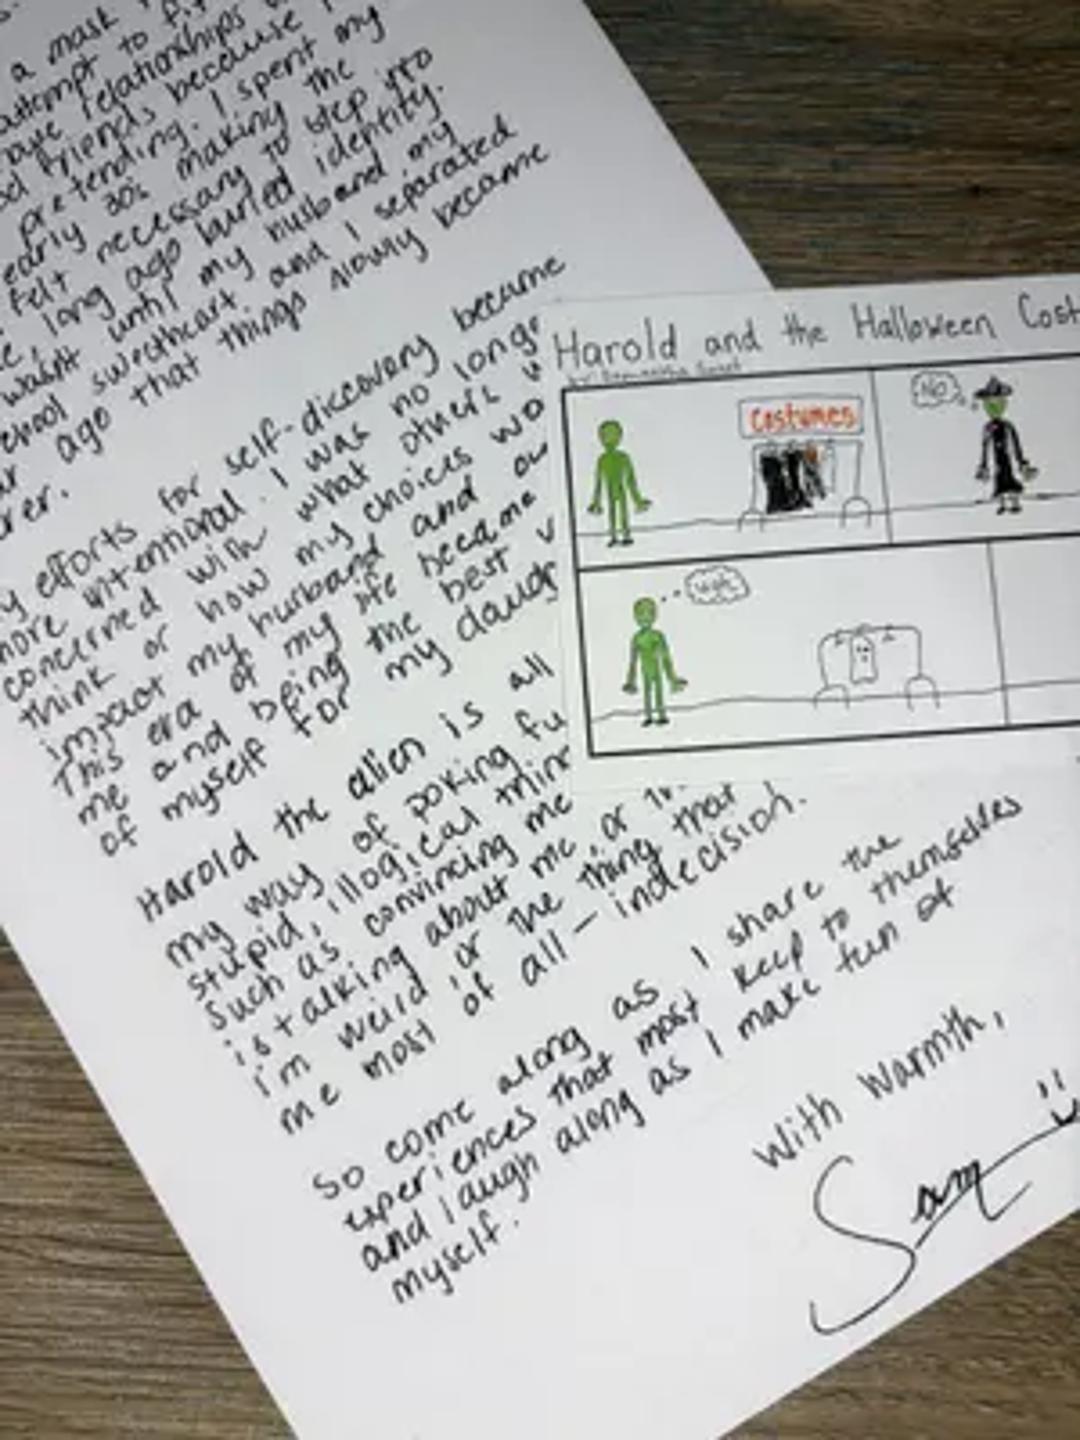 a mask
attempt to fit
relationships
friends because I
pretending. I spent my
early 30s making the
felt necessary to step into
long ago buried identity.
wasn't until my husband my
school sweetheart and I separated
ago that things slowly became
efforts for self-discovery became
more intentional. I was no
concerned with what others
think or how my choices
impact my husband and
This era of my life became
me and being the best
of myself for my
Harold the alien is all
my way of poking
stupid, illogical
such as convincing me
is talking about me, or
I'm weird, or the thing that
me most of all — indecision.
So come along as I share the
experiences that most keep to themselves
and laugh along as I make fun of
myself.
With Warmth,
Sam
Harold and the Halloween
by: Samantha
Costumes
No